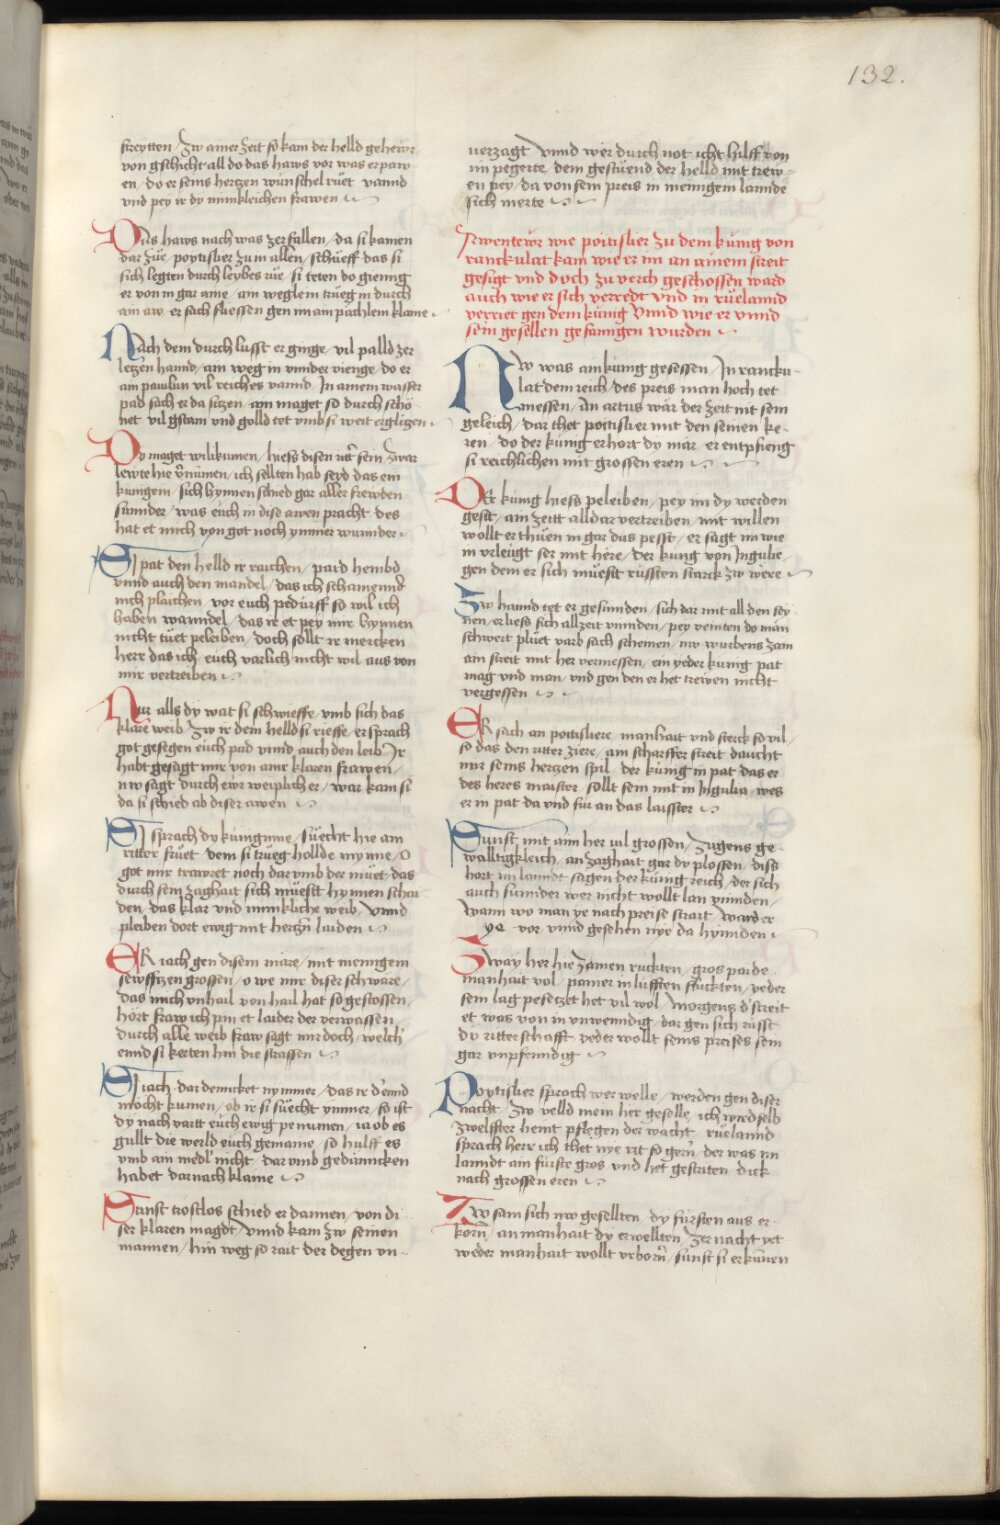 132.
streytten Zw ainer zeit so kam der helld gehewr
von gschicht all do das haws vor was erpaw
en / do er seins hertzen wunschel ruet vannd
vnd pey ir dy minnkleichen frawen
Das haws nach was zerfallen / da si kamen
dar zue / poytislier zum allen / schueff das si
sich legten durch leybes rue / si teten do gienng
er von in gar aine / am weglein trueg in durch
ain aw er sach fliessen gen im ain pächlem klaine
Nach dem durch lusst er ginge / vil palld zer
letzen hannd / am weg in vnnder vienge / do er
am pawlun vil reiches vannd / In ainem wasser
pad sach er da sitzen ain maget so durch schö
net vil gstain vnd golld tet vmb si weit erglitzen
Dy maget wilikumen / hiess disen ritter sein / zwar
lewte hie vernumen / ich sellten hab seyd das ein
kunigein / sich hynnen schied gar aller frewden
sunnder / was euch in dise awen pracht des
hat et mich von got noch ymmer wunnder
Si pat den helld ir raichen / paid hembd
vnnd auch den mandel / das ich schamennd
mich plaichen / vor euch pedürff so wil ich
haben wanndel / das ir et pey mir hynnen
nicht tuet peleiben / doch sollt ir mercken
here das ich euch varlich nicht wil aus von
mir vertreiben
Nur alls dy wat si schwieffe / vmb sich das
klare weib / Zw ir dem helld si rieffe / er sprach
got gesegen euch pad vnnd auch den leib / Ir
habt gesagt mir von ainr klaren frawen /
nw sagt durch ewr weiplich er / war kam si
da si schied ab diser awen
Si sprach dy kuniginne / suecht hie ain
ritter fruet / dem si trueg hollde mynne / O
got mir trawret noch darvmb der muet / das
durch sein zaghait sich muesst hynnen schai
den / das klar vnd minnkliche weib / vnnd
pleiben dort ewig mit hertzn laiden
ER iach gen disem märe / mit mennigem
sewfftzen grossen / o we mir diser schwäre /
das mich vnhail von hail hat so gestossen /
hört fraw ich pin et laider der verwassen
durch alle weib fraw sagt mir doch / welch
ennd si kerten hin die strassen
Si iach dar dennckt nymmer / das ir dennd
möcht kumen / ob ir si suecht ymmer / so ist
dy nach vartt euch ewig penumen / ia ob es
gullt die werld euch gemaine / so hulff es
vmb ain medl nicht / darvmb gedünncken
habet darnach klaine
Sunst trostlos schied er dannen / von di
ser klaren magdt / vnnd kam zw seinen
mannen / hin weg so rait der degen vn
verzagt vnnd wer durch not icht hilff von
im pegerte / dem gestuend der helld mit trew
en pey / da von sein preis in mennigem lannde
sich merte
Awentewr wie poitislier zu dem kunig von
ranckulat kam wie er im an ainem streit
gesigt vnd doch zu verch geschossen ward
auch wie er sich verredt vnd in ruelannd
verriet gen dem kunig vnnd wie er vnnd
sein gesellen gefanngen wurden
NW was ain kunig gesessen / In rancku
lat dem reich / des preis man hoch tet
messen / An artus wär der zeit nit sein
geleich / dar thet poitislier mit den seinen ke
ren / do der kunig erhort dy mär / er entpfieng
si reichlichen mit grossen eren
Der kunig hiess peleiben / pey im dy werden
gest / ain zeitt alldar vertreiben / mit willen
wollt er thuen in gar das pesst / er sagt im wie
in vrleugt ser mit here / der kung von Ingulie
gen dem er sich muesst russten starck zw were
Zw hannd tet er gesunnden / sich dar mit all den sey
nen / er liess sich allzeit vinnden / pey veinten do man
schwert pluet varb sach scheinen / nw wurbens zam
ain streit mit her vermessen / ein yeder kunig pat
mag vnd man / vnd gen den er het trewen nicht
vergessen
ER sach an poitisliere / manhait vnd sterck so vil /
so das den ritter ziere / ain scharffer streit daucht
nur seins hertzen spil / der kunig in pat das er
des heres maister / sollt sein mit in Ingulia / wes
er in pat da vnd fur an das laisster
Sunst mit ainn her vil grossen / zugens ge
walltigkleich / an zaghait gar dy plossen / diss
hort im lanndt sagen der kunig reich / der sich
auch sunnder wer nicht wollt lan vinnden /
wann wo man ye nach preise strait ward er
ye vor vnnd gesehen nye da hynnden
Zway her hie zamen ruckten / gros paide
manhait vol / panier in lufften fluckten / yeder
sein lag pesetzet het vil wol / morgens d streit
et was von in vnwenndig / dar gen sich russt
dy ritterschafft yeder wollt seins preises sein
gar vnpfenndig
Poytislier sprach wer welle / werden gen diser
nacht / Zw velld mein her geselle / ich wird selb
zwelffter heint pflegen der wacht / ruelannd
sprach herr ich thet nye rit so gern / der was im
lanndt ain fürste gros vnd het gestriten dick
nach grossen eren
Zw sam sich nw gesellten / dy fürsten aus er
korn / an manhait dy erwellten / zer nacht yet
weder manhait wollt vrborn / sunst si erkunen